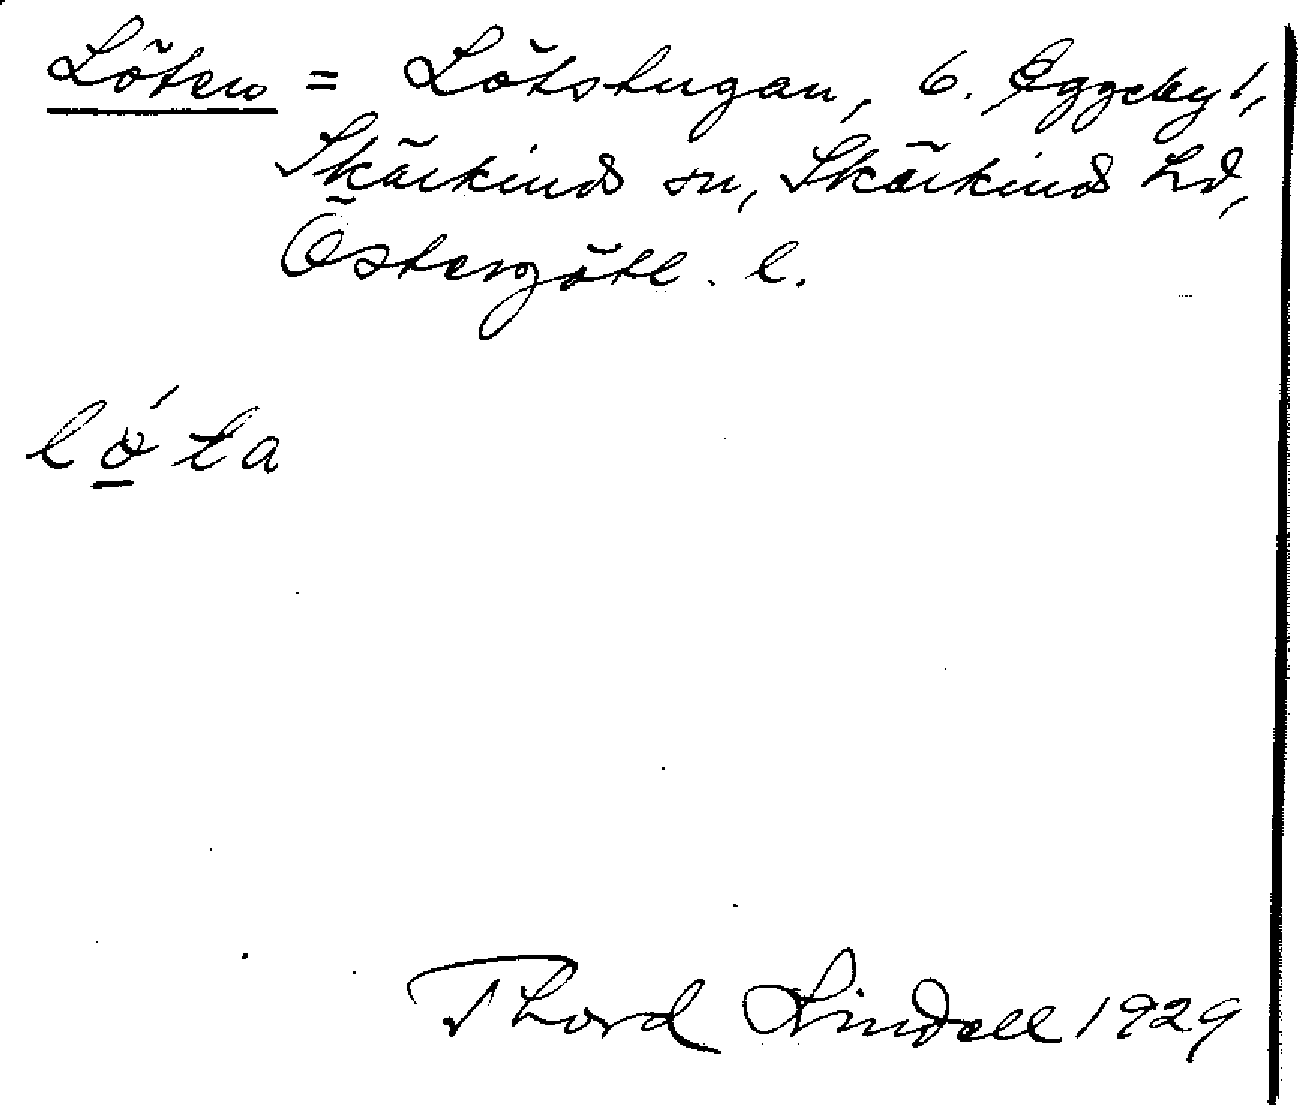 Löten = Lötstugan, b. Eggeby 1,
Skärkinds sn, Skärkinds hd,
Östergötl. l.
lǿta
Thord Lindell 1929